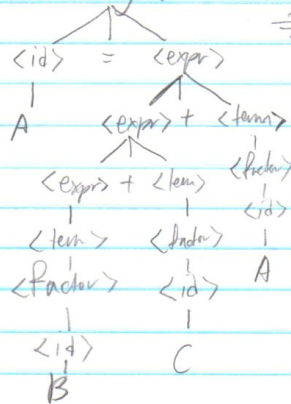 <id> = <expr>
A <expr> + <term>
<expr> + <term> <factor>
<term> <factor> <id>
<factor> <id> A
<id> C
B